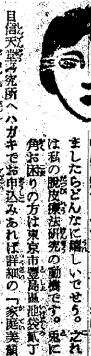 ましたらどんなに嬉しいでせう。之れ
は私の脱皮療法研究の動機です。兎に
角お困りの方は東京市豊島區池袋貳丁
目信天堂研究所へハガキでお申込みあれば詳細の「家庭美顔